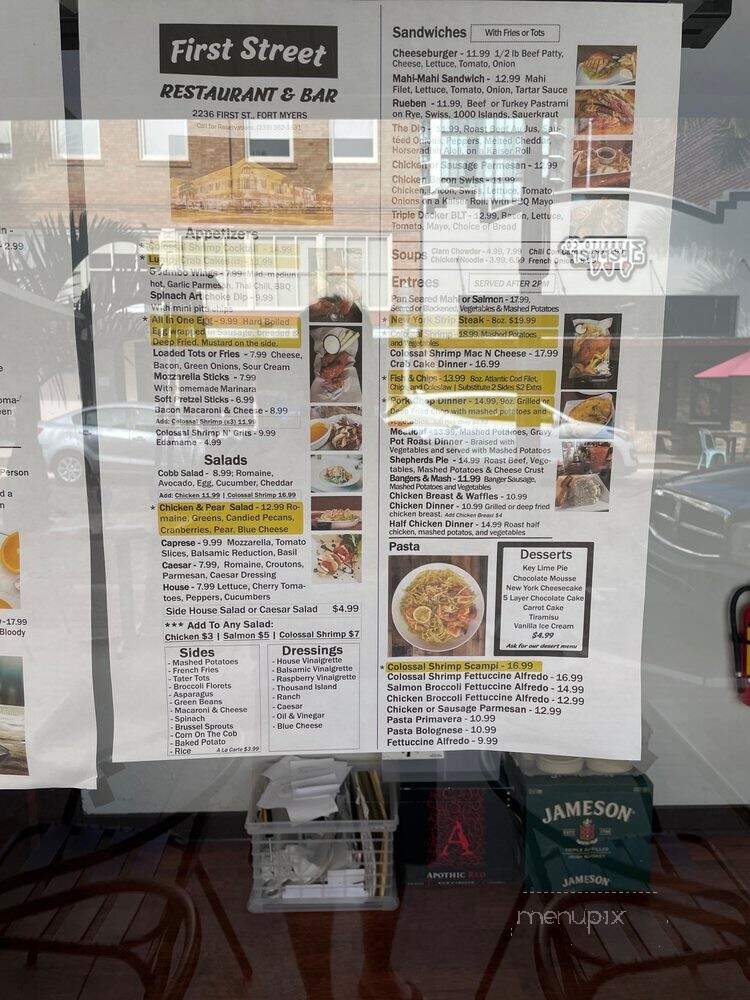 First Street
RESTAURANT & BAR
2236 FIRST ST., FORT MYERS
Call for Reservations
Appetizers
* Colossal Shrimp Cocktail - 14.99
Crab Cakes
Jumbo Wings - 7.99 Mild, medium
hot, Garlic Parmesan, Thai Chili, BBQ
Spinach Artichoke Dip - 9.99
With mini pita chips
* All In One Egg - 9.99 Hard Boiled
Egg wrapped in Sausage, breaded &
Deep Fried, Mustard on the side.
Loaded Tots or Fries - 7.99 Cheese,
Bacon, Green Onions, Sour Cream
Mozzarella Sticks - 7.99
With homemade Marinara
Soft Pretzel Sticks - 6.99
Bacon Macaroni & Cheese - 8.99
Add: Colossal Shrimp (x3) 11.99
Colossal Shrimp N' Grits - 9.99
Edamame - 4.99
Salads
Cobb Salad - 8.99; Romaine,
Avocado, Egg, Cucumber, Cheddar
Add: Chicken 11.99 | Colossal Shrimp 16.99
* Chicken & Pear Salad - 12.99 Ro-
maine, Greens, Candied Pecans,
Cranberries, Pear, Blue Cheese
Caprese - 9.99 Mozzarella, Tomato
Slices, Balsamic Reduction, Basil
Caesar - 7.99, Romaine, Croutons,
Parmesan, Caesar Dressing
House - 7.99 Lettuce, Cherry Toma-
toes, Peppers, Cucumbers
Side House Salad or Caesar Salad $4.99
*** Add To Any Salad:
Chicken $3 | Salmon $5 | Colossal Shrimp $7
Sides
- Mashed Potatoes
- French Fries
- Tater Tots
- Broccoli Florets
- Asparagus
- Green Beans
- Macaroni & Cheese
- Spinach
- Brussel Sprouts
- Corn On The Cob
- Baked Potato
- Rice
A La Carte $3.99
Dressings
- House Vinaigrette
- Balsamic Vinaigrette
- Raspberry Vinaigrette
- Thousand Island
- Ranch
- Caesar
- Oil & Vinegar
- Blue Cheese
Sandwiches
With Fries or Tots
Cheeseburger - 11.99 1/2 lb Beef Patty,
Cheese, Lettuce, Tomato, Onion
Mahi-Mahi Sandwich - 12.99 Mahi
Filet, Lettuce, Tomato, Onion, Tartar Sauce
Rueben - 11.99, Beef or Turkey Pastrami
on Rye, Swiss, 1000 Islands, Sauerkraut
The Dip - 99, Roast Beef Au Jus, Sau-
téed Onions, Peppers, Melted Cheddar,
Horseradish Aioli, on a Kaiser Roll
Chicken or Sausage Parmesan - 12.99
Chicken Bacon Swiss - 11.99
Chicken, Bacon, Swiss, Lettuce, Tomato
Onions on a Kaiser Roll with BBQ Mayo
Triple Decker BLT - 12.99, Bacon, Lettuce,
Tomato, Mayo, Choice of Bread
Soups
Clam Chowder - 4.99, 7.99 Chili Con
Chicken Noodle - 3.99, 6.99 French Onion
Entrees
SERVED AFTER 2PM
Pan Seared Mahi or Salmon - 17.99,
Seared or Blackened, Vegetables & Mashed Potatoes
* New York Strip Steak - 8oz. $19.99
Shrimp - 18.99, Mashed Potatoes
and Vegetables
Colossal Shrimp Mac N Cheese - 17.99
Crab Cake Dinner - 16.99
* Fish & Chips - 13.99 8oz. Atlantic Cod Filet,
Chips and Coleslaw | Substitute 2 Sides $2 Extra
* Pork Chop Dinner - 14.99, 9oz. Grilled or
Deep fried chop with mashed potatoes and
Meatloaf - 13.99, Mashed Potatoes, Gravy
Pot Roast Dinner - Braised with
Vegetables and served with Mashed Potatoes
Shepherds Pie - 14.99 Roast Beef, Vege-
tables, Mashed Potatoes & Cheese Crust
Bangers & Mash - 11.99 Banger Sausage,
Mashed Potatoes and Vegetables
Chicken Breast & Waffles - 10.99
Chicken Dinner - 10.99 Grilled or deep fried
chicken breast. Add Chicken Breast $4
Half Chicken Dinner - 14.99 Roast half
chicken, mashed potatos, and vegetables
Pasta
Desserts
Key Lime Pie
Chocolate Mousse
New York Cheesecake
5 Layer Chocolate Cake
Carrot Cake
Tiramisu
Vanilla Ice Cream
$4.99
Ask for our desert menu
* Colossal Shrimp Scampi - 16.99
Colossal Shrimp Fettuccine Alfredo - 16.99
Salmon Broccoli Fettuccine Alfredo - 14.99
Chicken Broccoli Fettuccine Alfredo - 12.99
Chicken or Sausage Parmesan - 12.99
Pasta Primavera - 10.99
Pasta Bolognese - 10.99
Fettuccine Alfredo - 9.99
2.99
Person
-17.99
Bloody
A
APOTHIC RED
JAMESON
TRIPLE DISTILLED
IRISH WHISKEY
JAMESON
menupix